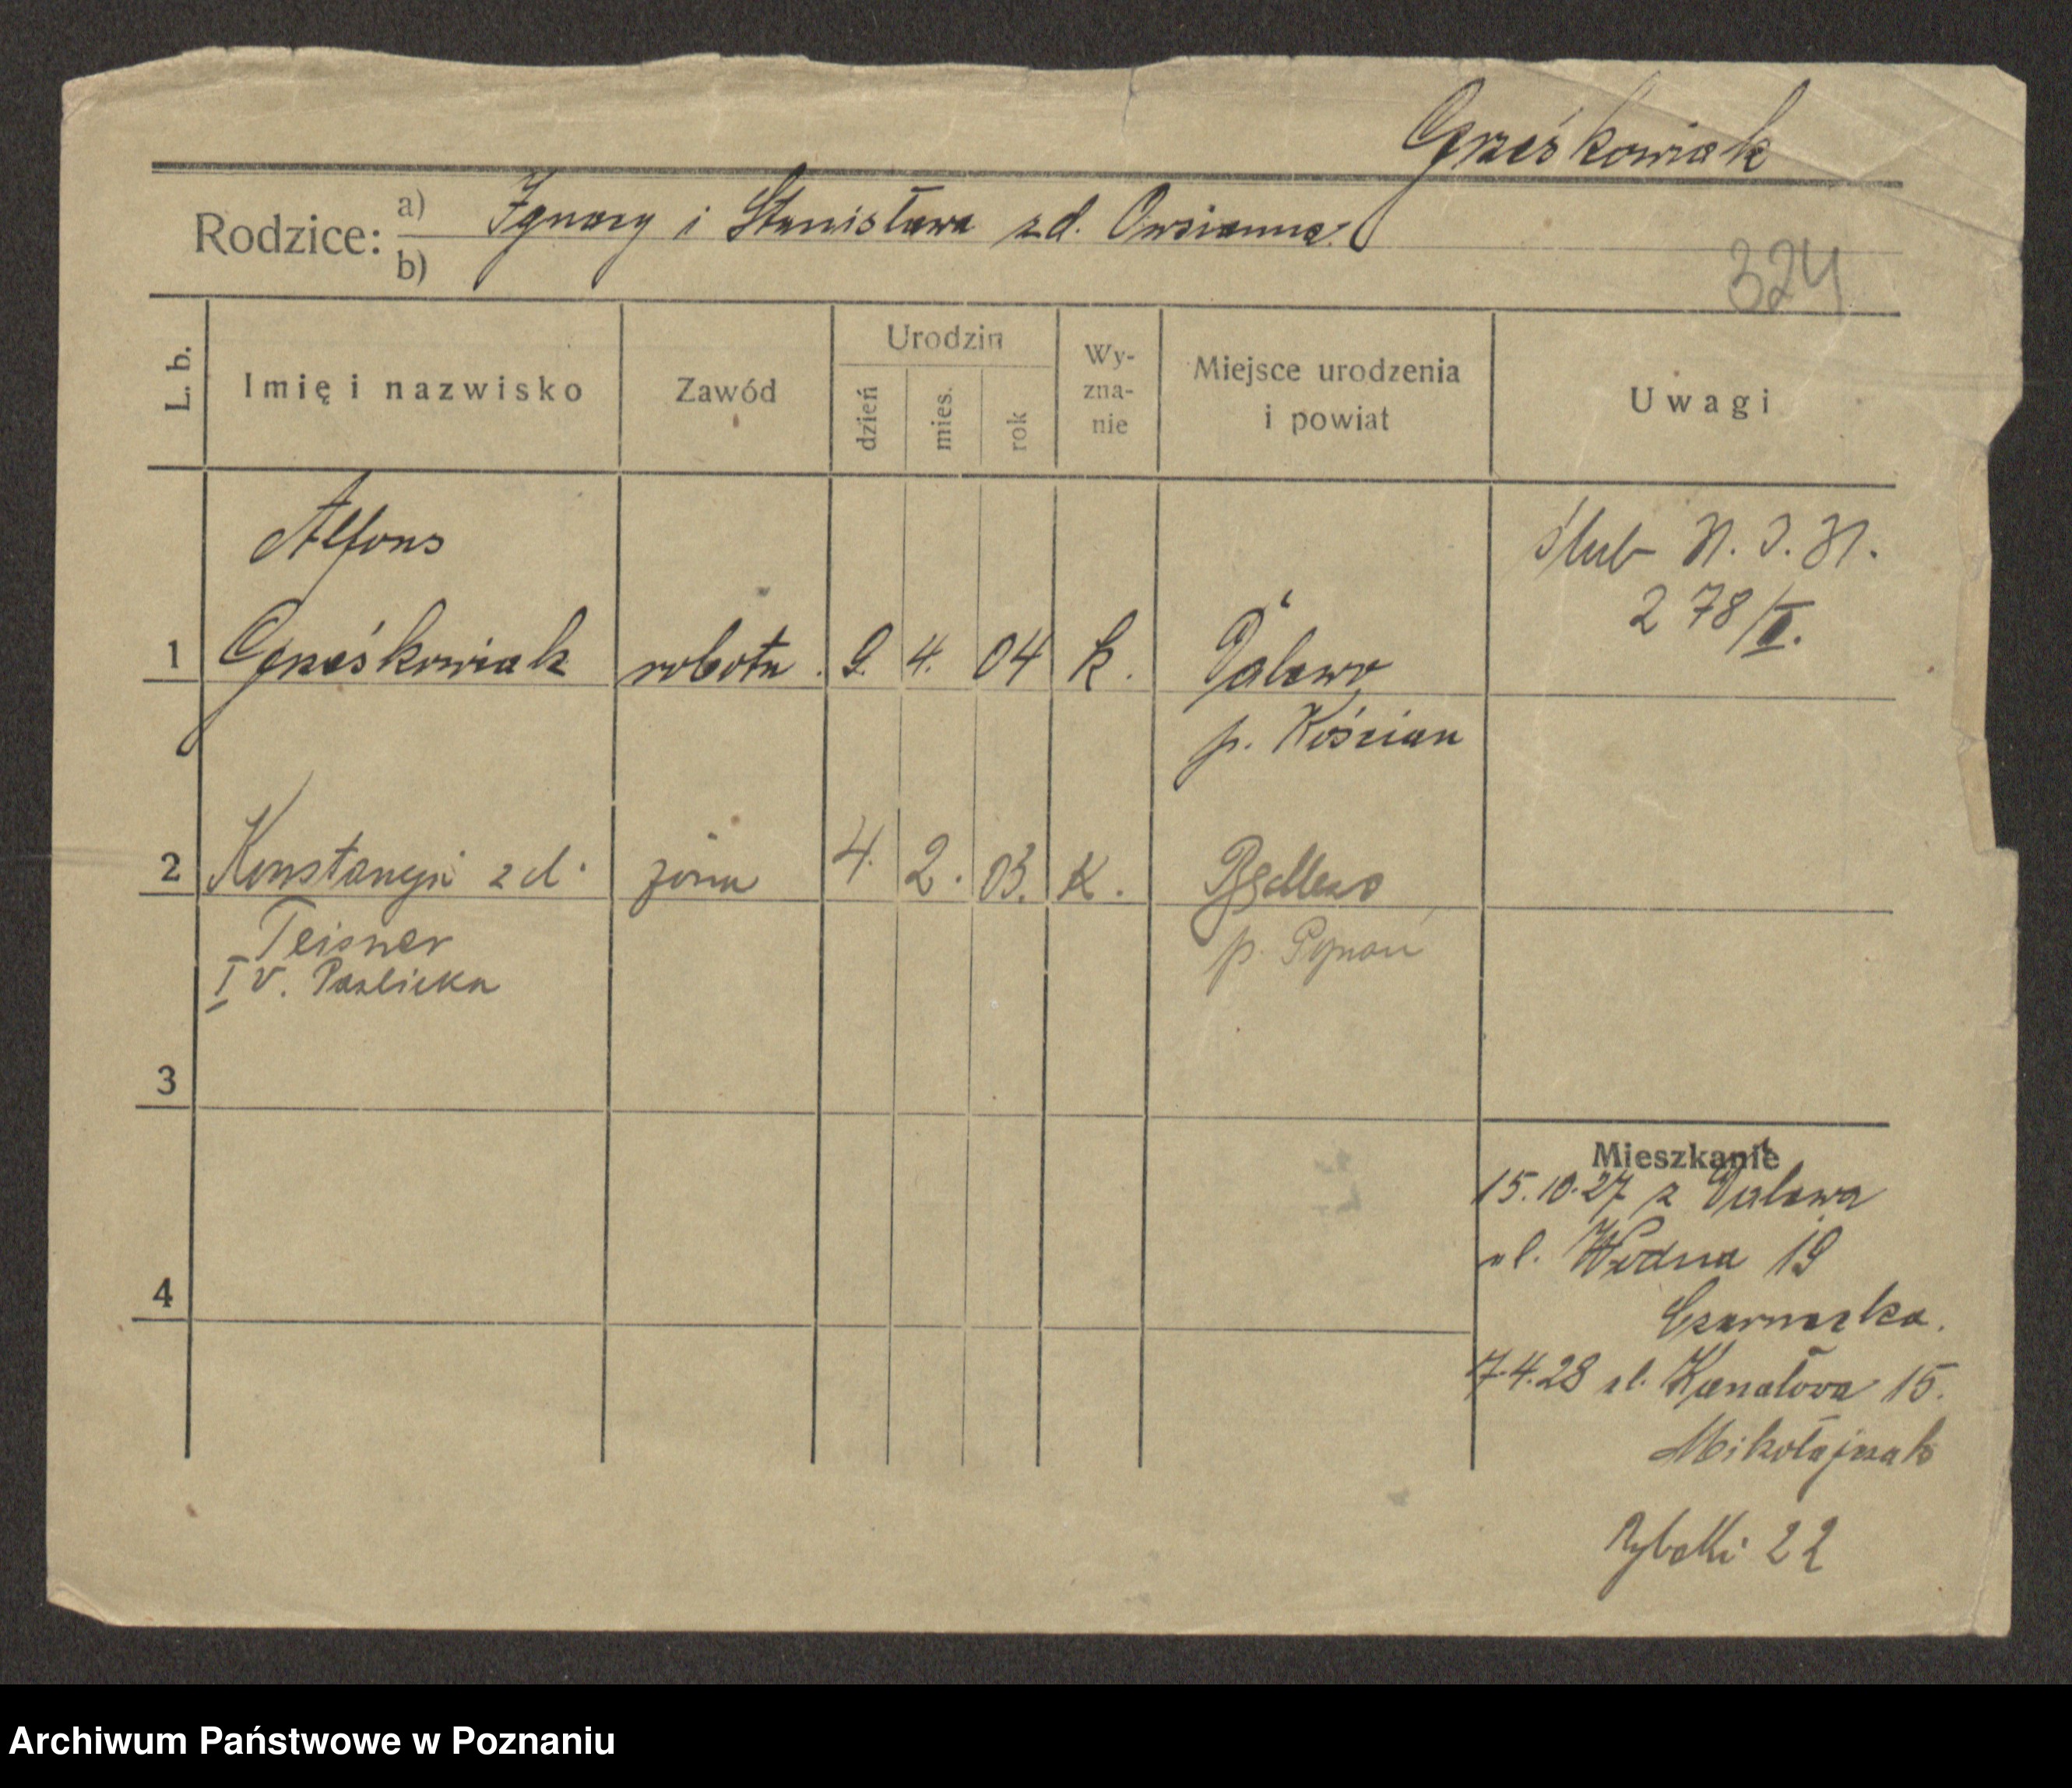 Grześkowiak
Rodzice: a) Ignacy i Stanisława zd. Owsianna
b)
324
L. b.
Imię i nazwisko
Zawód
Urodzin
dzień
mies.
rok
Wy-
zna-
nie
Miejsce urodzenia
i powiat
Uwagi
Alfons
ślub
278/II.
1 Grześkowiak robotn. 9. 4. 04 k.
p. Kościan
2 Konstancja zd. żona 4. 2. 03. k.
Teisner
I v. Pawlicka
p. Poznań
3
Mieszkanie
15.10.27 z
ul. Wodna 19
4
Czarnecka.
7.4.28 ul. Kanałowa 15.
Mikołajczak
Rybaki 22
Archiwum Państwowe w Poznaniu